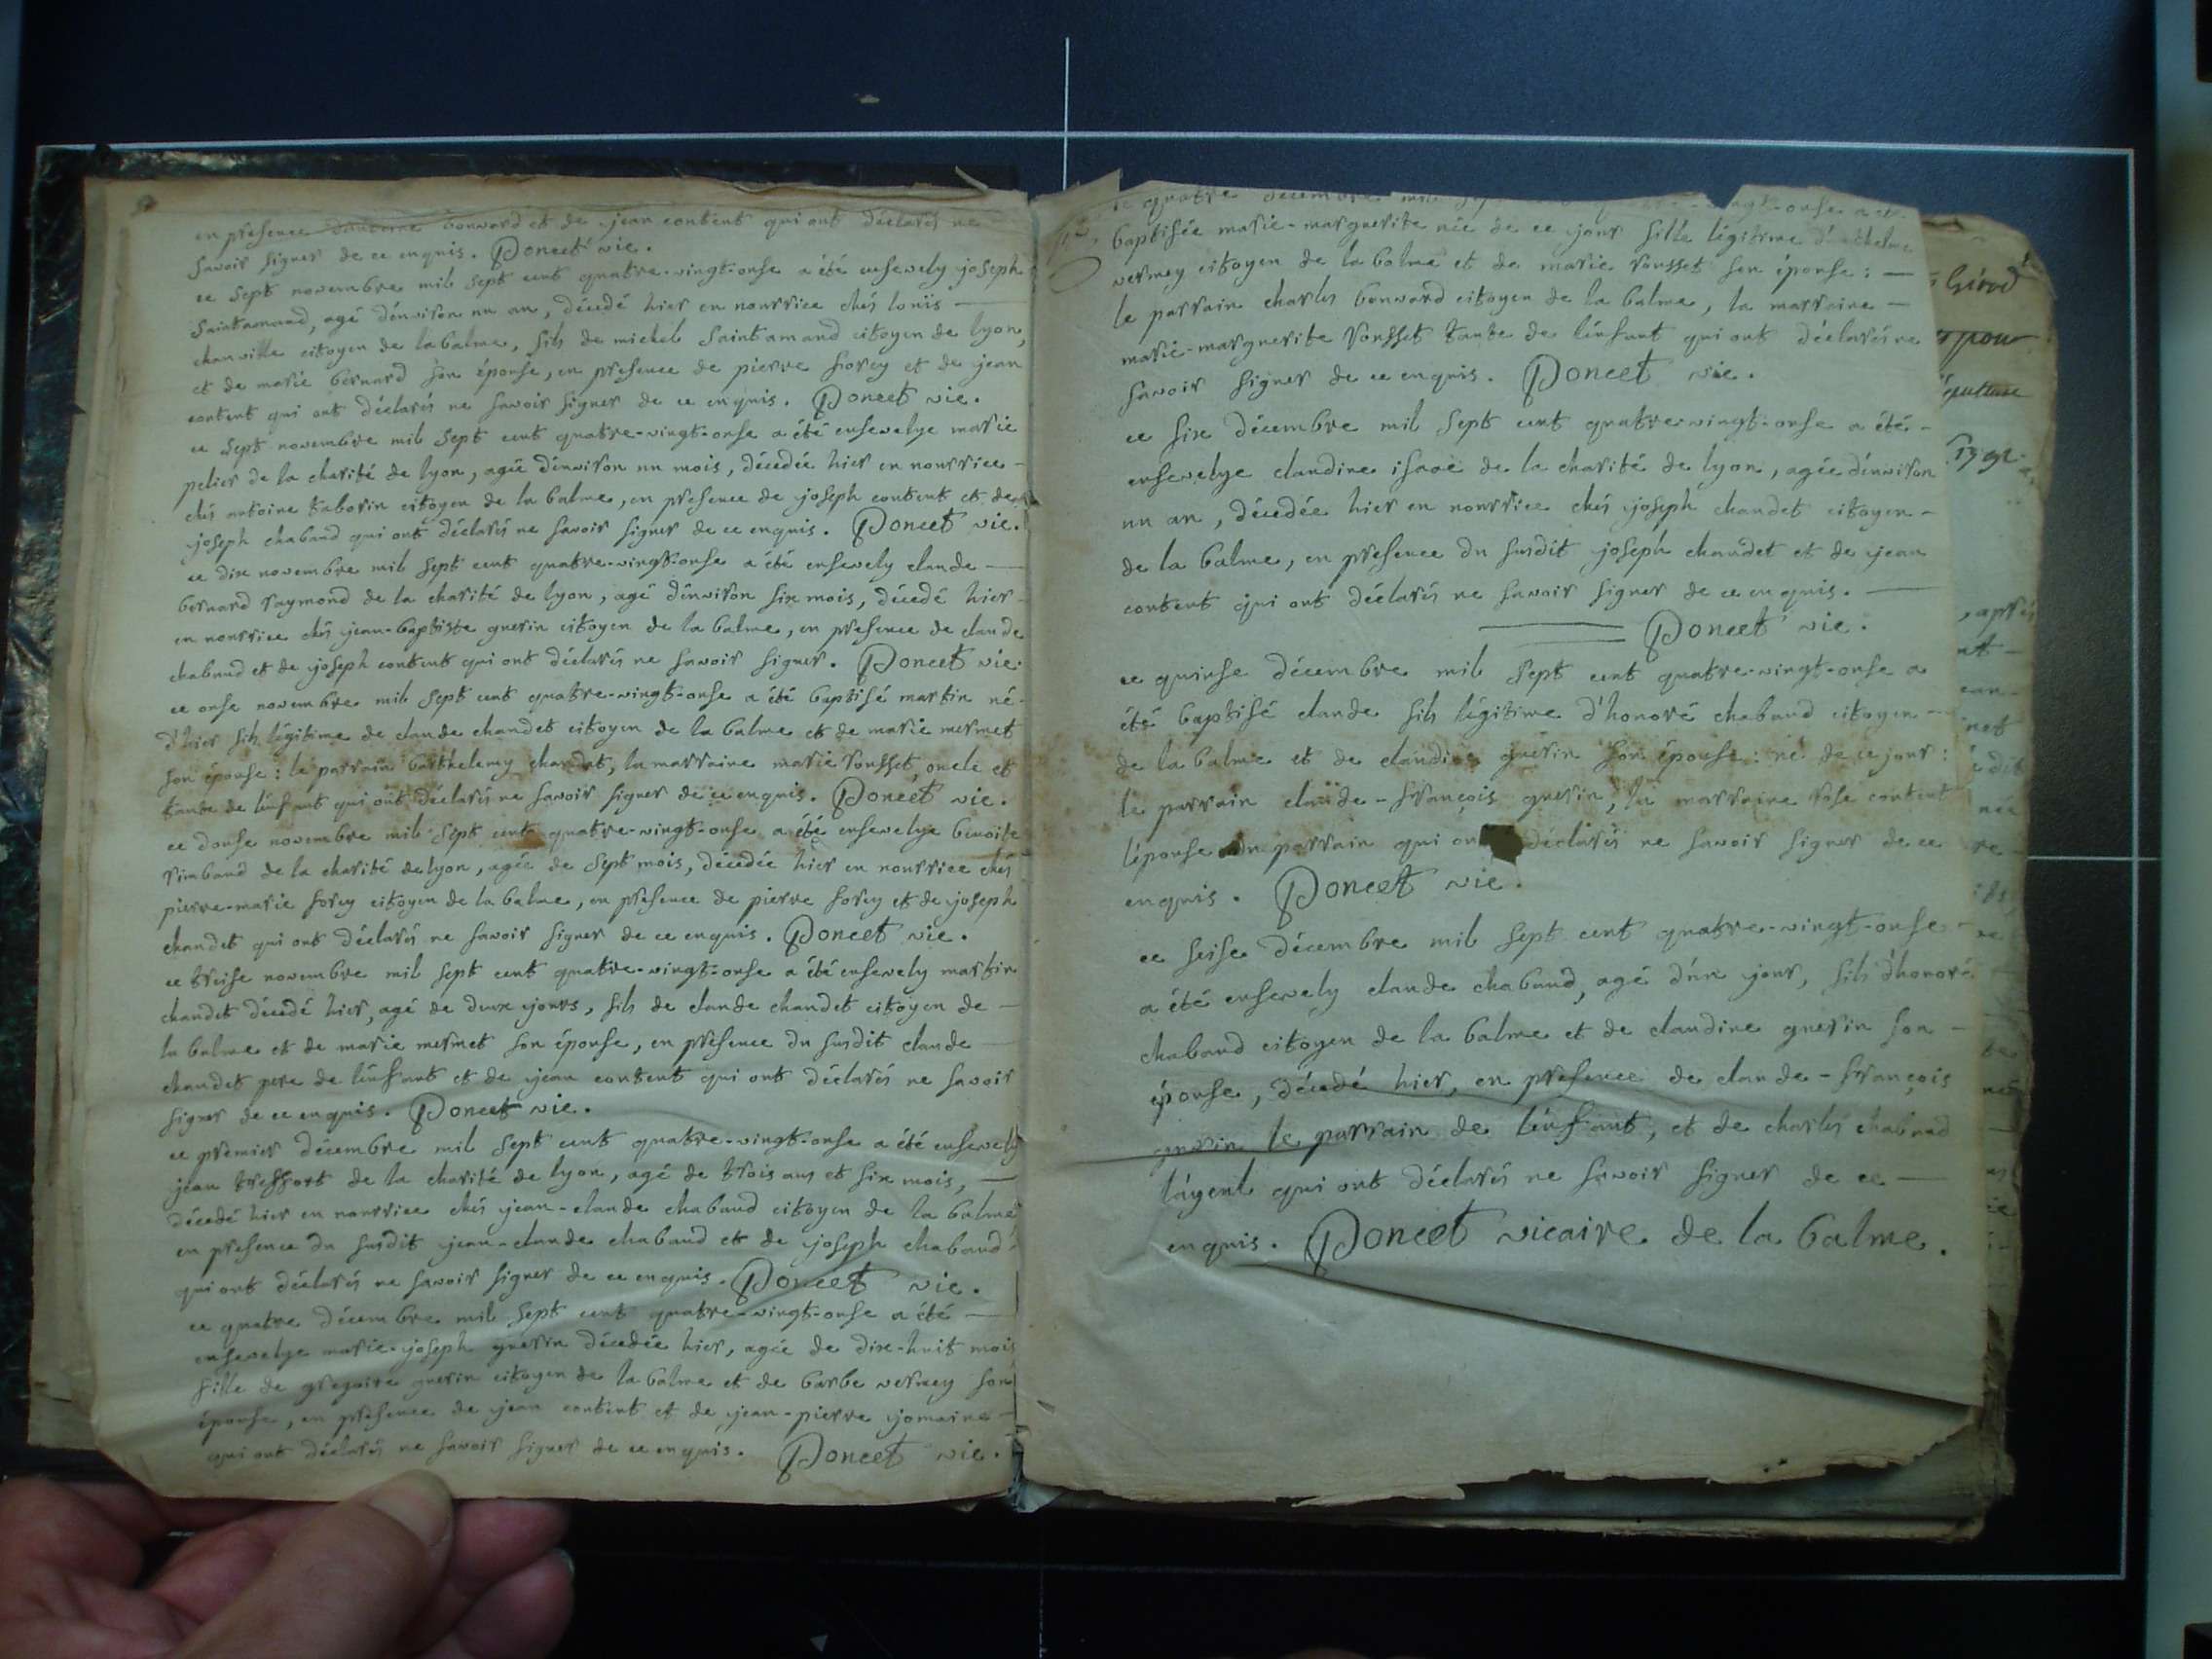 en presence d'antoine bonnard et de jean content qui ont déclarés ne
savoir signer de ce enquis. Poncet vic.
ce sept novembre mil sept cent quatre-vingt-onse a été ensevely joseph
saintamand, agé d'environ un an, décédé hier en nourrice chés louis
chanville citoyen de la balme, fils de michel saintamand citoyen de lyon,
et de marie bernard son épouse, en presence de pierre forey et de jean
content qui ont déclarés ne savoir signer de ce enquis. Poncet vic.
ce sept novembre mil sept cent quatre-vingt-onse a été ensevelye marie
pelier de la charité de lyon, agée d'environ un mois, décédée hier en nourrice
chés antoine taborin citoyen de la balme, en presence de joseph content et de
joseph chabaud qui ont déclarés ne savoir signer de ce enquis. Poncet vic.
ce dix novembre mil sept cent quatre-vingt-onse a été ensevely claude
bernard raymond de la charité de lyon, agé d'environ six mois, décédé hier
en nourrice chés jean-baptiste guerin citoyen de la balme, en presence de claude
chabaud et de joseph content qui ont déclarés ne savoir signer. Poncet vic.
ce onse novembre mil sept cent quatre-vingt-onse a été baptisé martin né
d'hier fils légitime de claude chaudet citoyen de la balme et de marie mermet
son épouse: le parrain barthelemy chaudet, la marraine marie rousset, oncle et
tante de l'enfant qui ont déclarés ne savoir signer de ce enquis. Poncet vic.
ce douse novembre mil sept cent quatre-vingt-onse a été ensevelye benoite
rimbaud de la charité de lyon, agée de sept mois, décédée hier en nourrice chés
pierre-marie forey citoyen de la balme, en presence de pierre forey et de joseph
chaudet qui ont déclarés ne savoir signer de ce enquis. Poncet vic.
ce treise novembre mil sept cent quatre-vingt-onse a été ensevely martin
chaudet décédé hier, agé de deux jours, fils de claude chaudet citoyen de
la balme et de marie mermet son épouse, en présence du susdit claude
chaudet pere de l'enfant et de jean content qui ont déclarés ne savoir
signer de ce enquis. Poncet vic.
ce premier décembre mil sept cent quatre-vingt-onse a été ensevely
jean treffort de la charité de lyon, agé de trois ans et six mois,
décédé hier en nourrice chés jean-claude chabaud citoyen de la balme
en presence du susdit jean-claude chabaud et de joseph chabaud
qui ont déclarés ne savoir signer de ce enquis. Poncet vic.
ce quatre décembre mil sept cent quatre-vingt-onse a été
ensevelye marie-joseph guerin décédée hier, agée de dix-huit mois
fille de gregoire guerin citoyen de la balme et de barbe vermey son
épouse, en presence de jean content et de jean-pierre jomaine
qui ont déclarés ne savoir signer de ce enquis. Poncet vic.
ce quatre décembre mil vingt-onse a été
baptisée marie-marguerite née de ce jour fille légitime
vermey citoyen de la balme et de marie rousset son épouse:
le parrain charles bonnard citoyen de la balme, la marraine
marie-marguerite rousset tante de l'enfant qui ont déclarés ne
savoir signer de ce enquis. Poncet vic.
ce six décembre mil sept cent quatre-vingt-onse a été
ensevelye claudine isaac de la charité de lyon, agée d'environ
un an, décédée hier en nourrice chés joseph chaudet citoyen
de la balme, en presence du susdit joseph chaudet et de jean
content qui ont déclarés ne savoir signer de ce enquis.
Poncet vic.
ce quinse décembre mil sept cent quatre-vingt-onse a
été baptisé claude fils légitime d'honoré chabaud citoyen
de la balme et de claudine guerin son épouse: né de ce jour:
le parrain claude-françois guerin, la marraine rose content
l'épouse du parrain qui ont déclarés ne savoir signer de ce
enquis. Poncet vic.
ce seise décembre mil sept cent quatre-vingt-onse
a été ensevely claude chabaud, agé d'un jour, fils d'honoré
chabaud citoyen de la balme et de claudine guerin son
épouse, décédé hier, en presence de claude-françois
guerin le parrain de l'enfant, et de charles chabaud
l'ayeul qui ont déclarés ne savoir signer de ce
enquis. Poncet vicaire de la balme.
Girod
pour
sépulture
1792